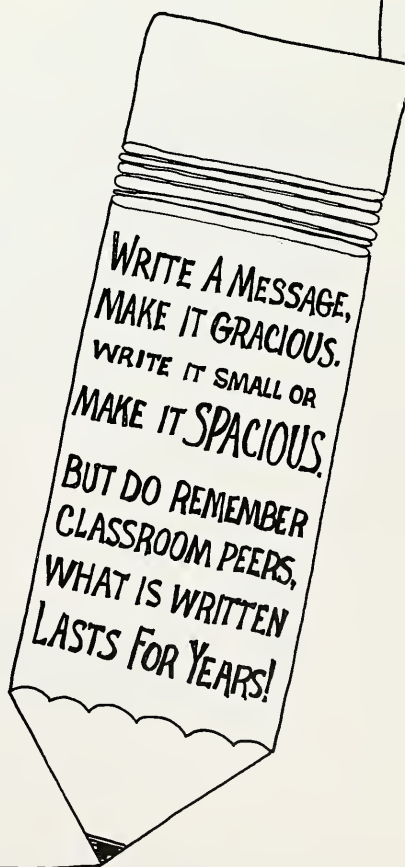 WRITE A MESSAGE,
MAKE IT GRACIOUS.
WRITE IT SMALL OR
MAKE IT SPACIOUS.
BUT DO REMEMBER
CLASSROOM PEERS,
WHAT IS WRITTEN
LASTS FOR YEARS!